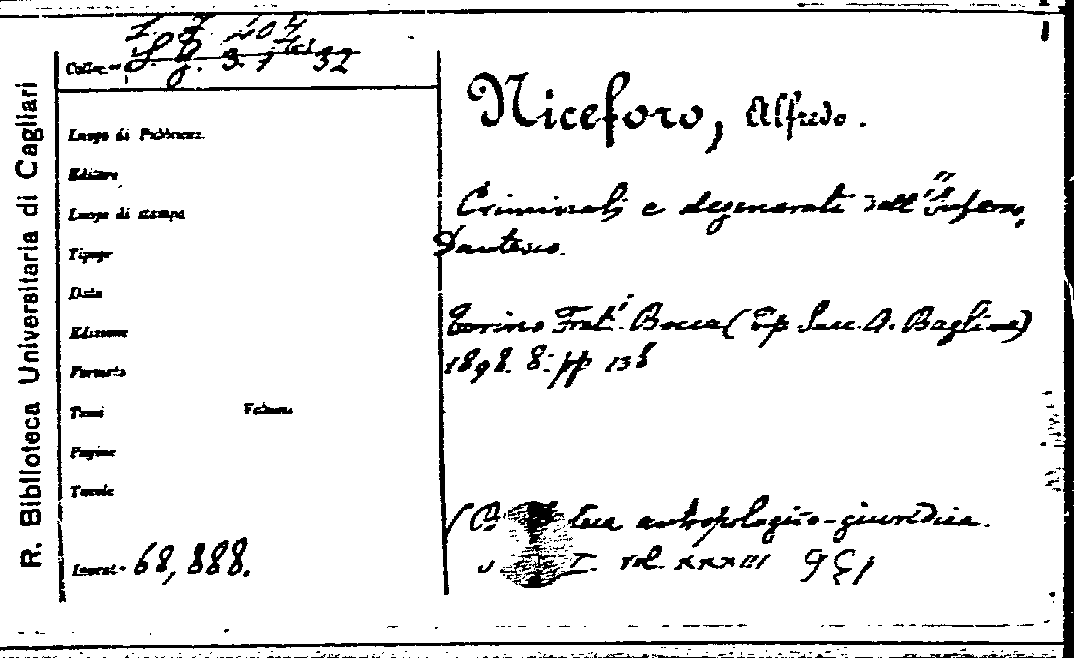 R. Biblioteca Universitaria di Cagliari
Colloc.ne
Luogo di Pubblicaz.
Editore
Luogo di stampa
Tipogr
Data
Edizione
Formato
Tomi Volume
Pagine
Tavole
Invent. 68,888.
Niceforo, Alfredo.
Criminali e degenerati dell'"Inferno"
Dantesco.
Torino Frat.i Bocca (Tip Succ. A. Baglione)
1898. 8: pp 138
antropologico-giuridica.
I. vol. XXXIII